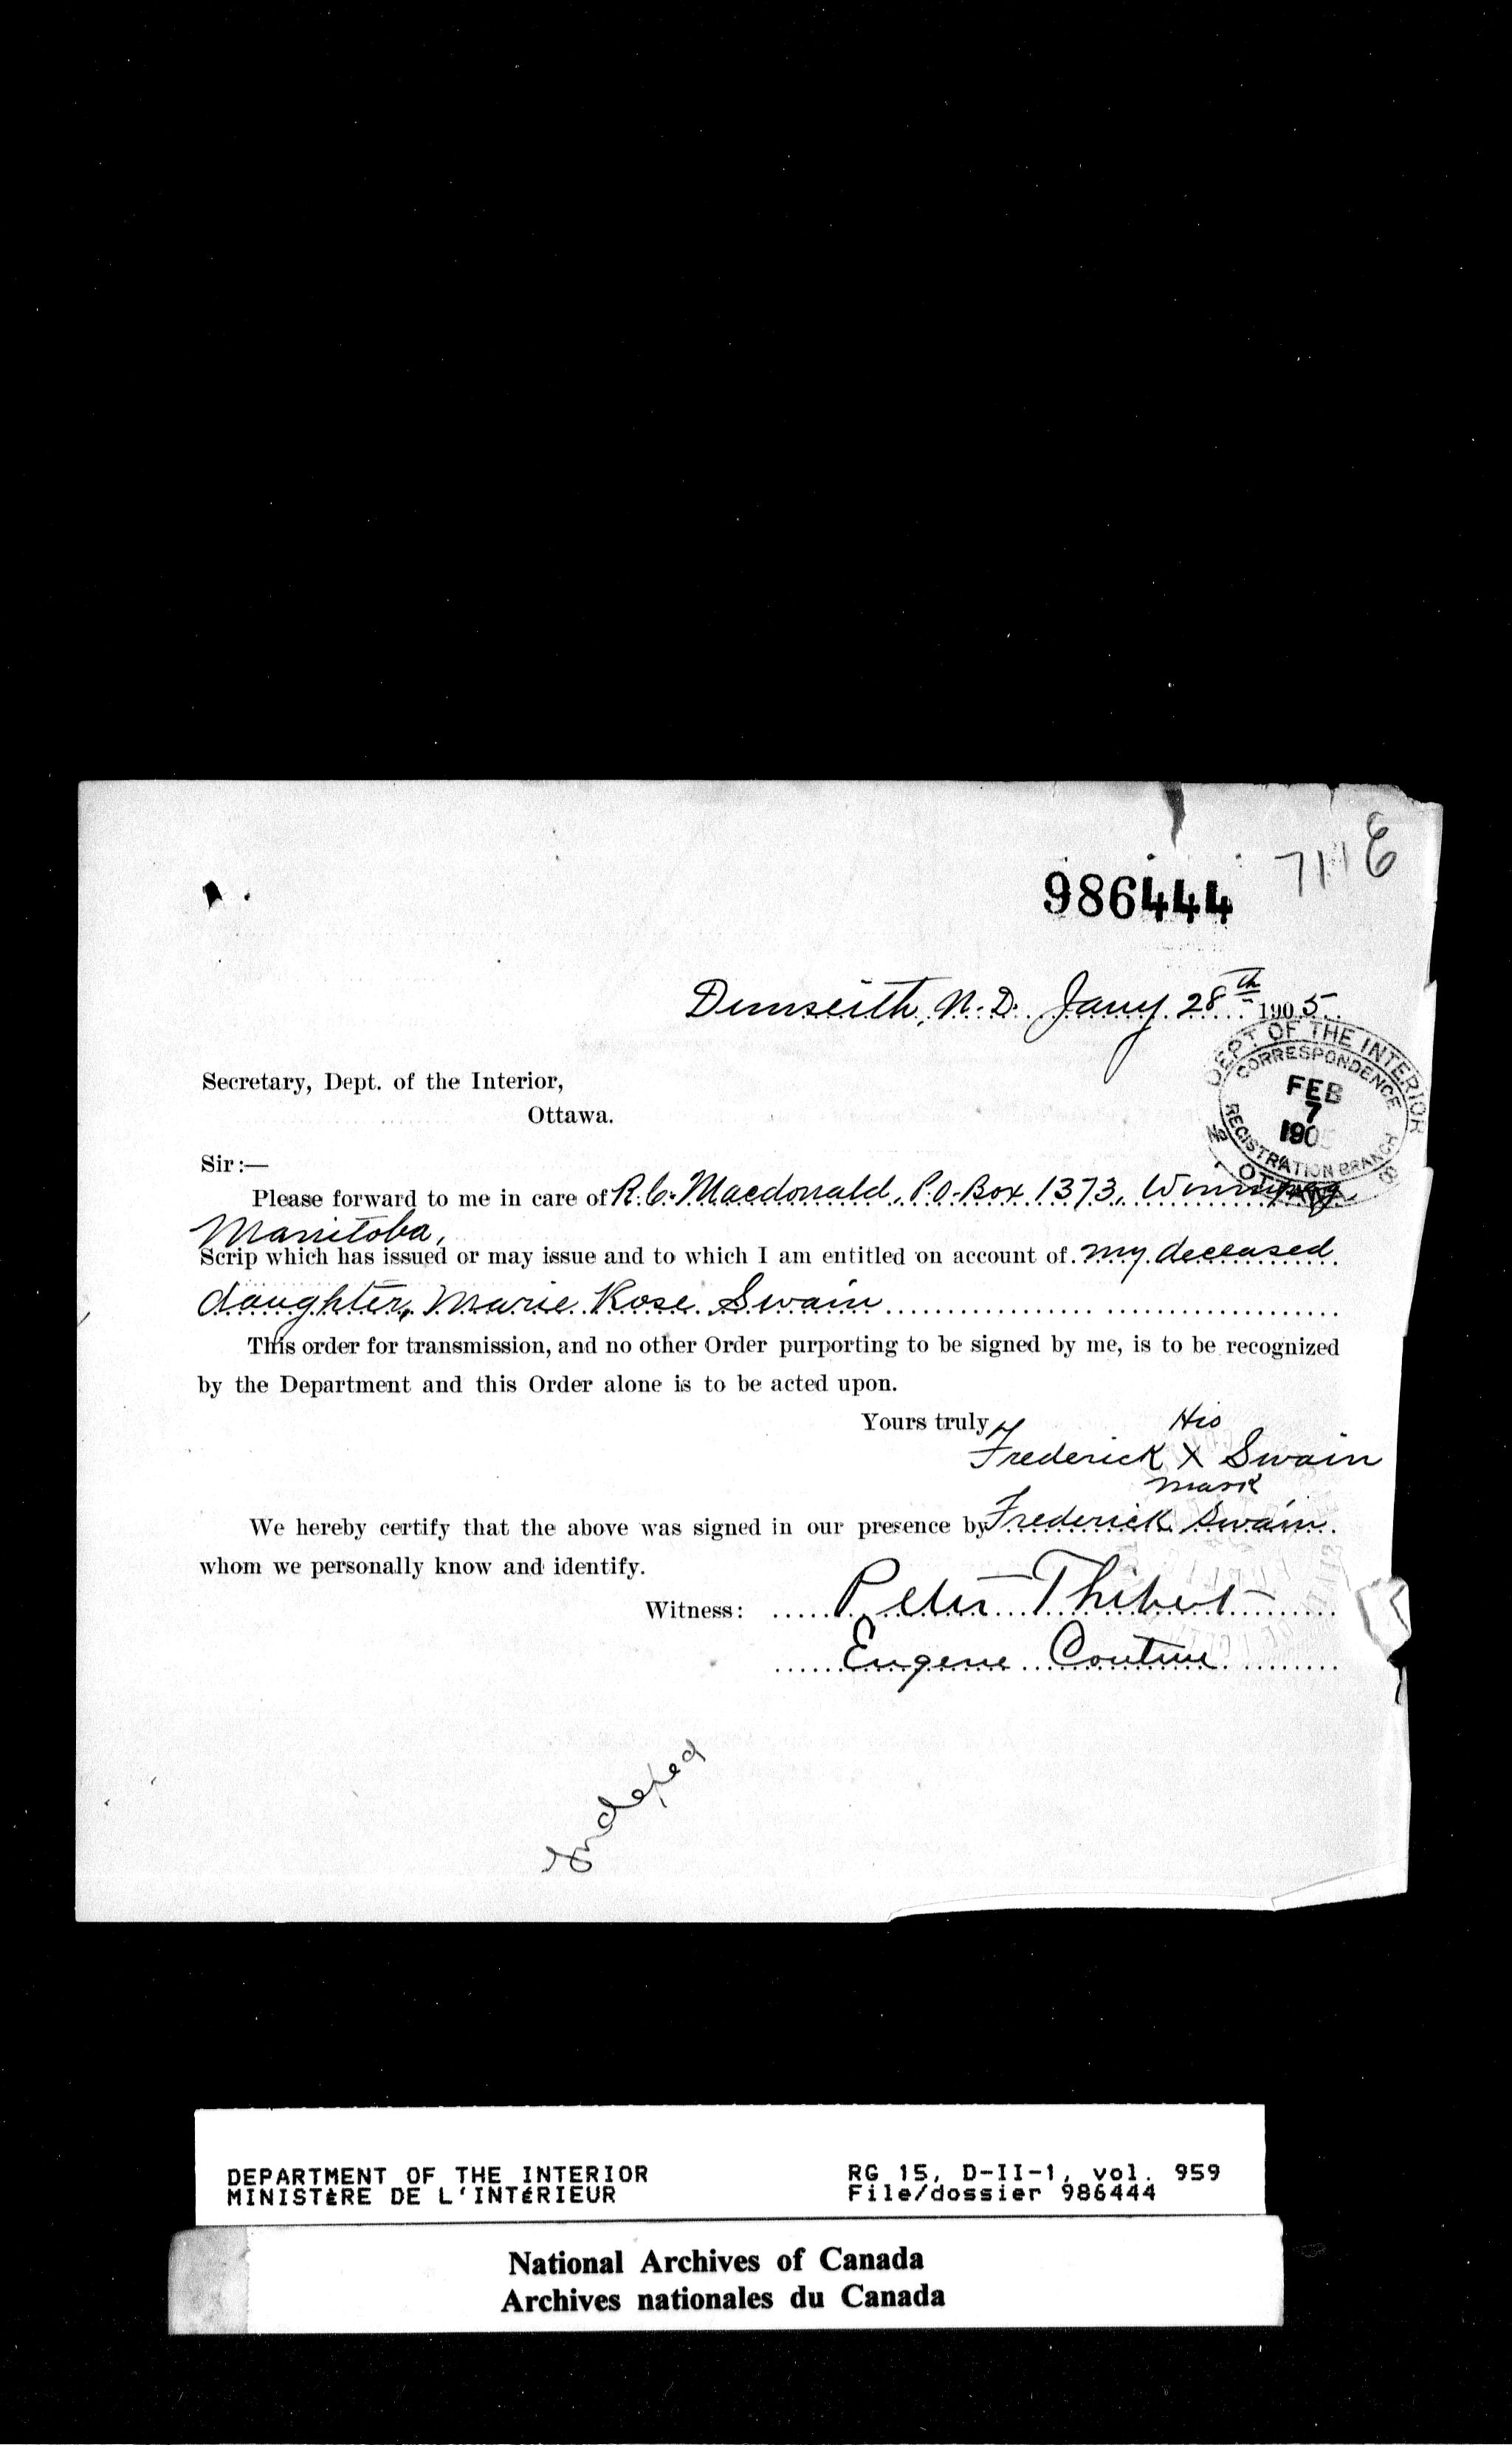 986444
Dunseith, N.D. Jany 28th 1905.
DEPT OF THE INTERIOR
CORRESPONDENCE
FEB
7
190
REGISTRATION BRANCH
OTTAWA
Secretary, Dept. of the Interior,
Ottawa.
Sir:—
Please forward to me in care of R. C. Macdonald, P.O. Box 1373, Winnipeg
Manitoba,
Scrip which has issued or may issue and to which I am entitled on account of my deceased
daughter, Marie Rose Swain
This order for transmission, and no other Order purporting to be signed by me, is to be recognized
by the Department and this Order alone is to be acted upon.
Yours truly,
His
Frederick X Swain
mark
We hereby certify that the above was signed in our presence by Frederick Swain.
whom we personally know and identify.
Witness: Peter Thibert
Eugene
Indexed
DEPARTMENT OF THE INTERIOR RG 15, D-II-1, vol. 959
MINISTÈRE DE L'INTÉRIEUR File/dossier 986444
National Archives of Canada
Archives nationales du Canada